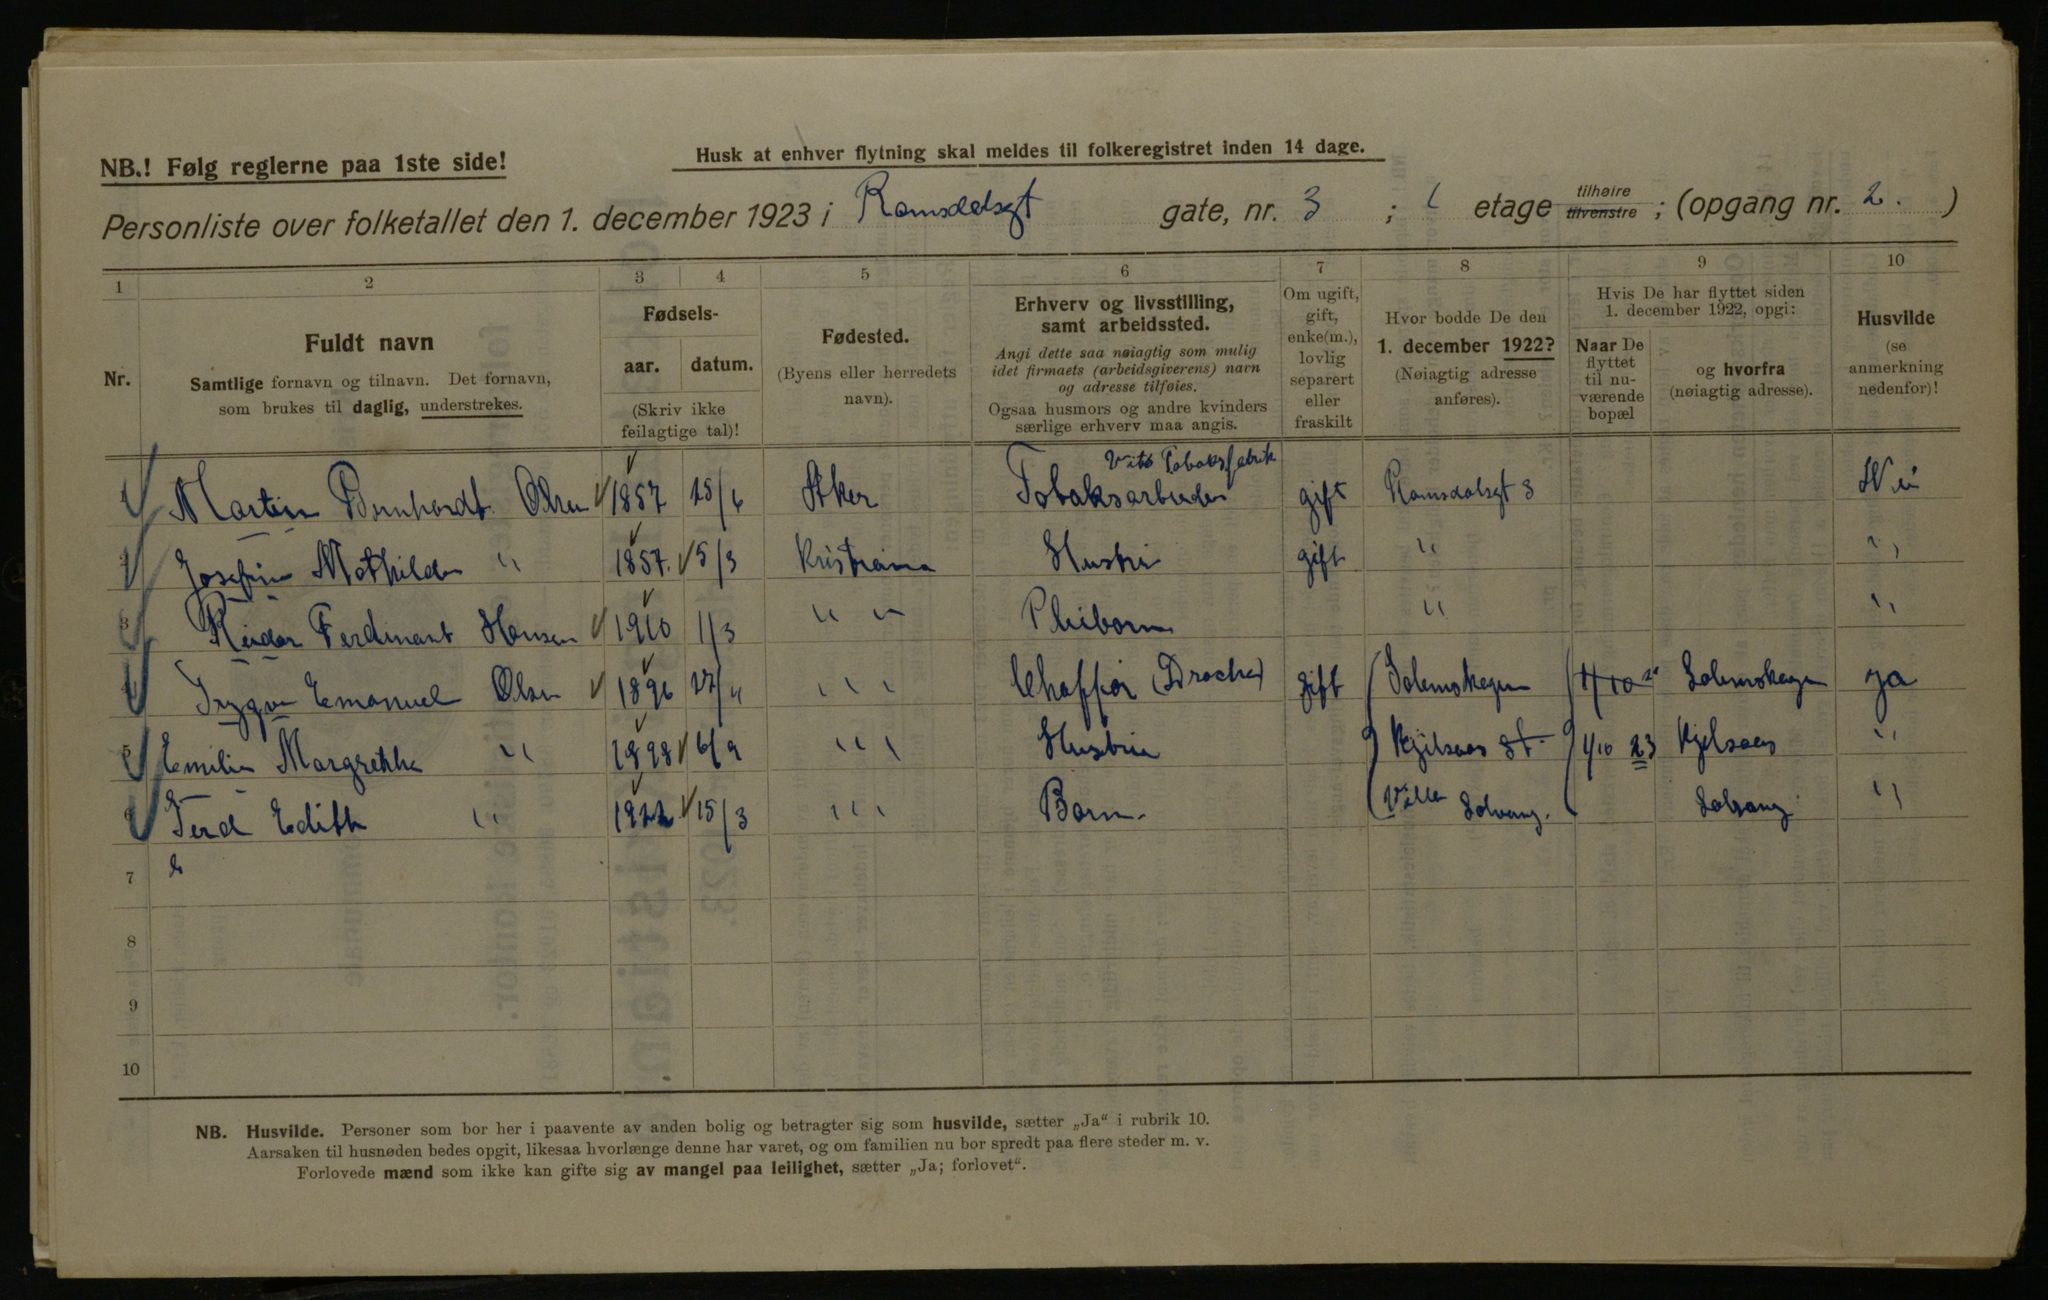 NB.! Følg reglerne paa 1ste side!
Husk at enhver flytning skal meldes til folkeregistret inden 14 dage.
Personliste over folketallet den 1. december 1923 i Romsdalsgt gate, nr. 3 ; 1 etage tilhøire tilvenstre ; (opgang nr. 2. )
1 2 3 4 5 6 7 8 9 10
Nr.
Fuldt navn
Samtlige fornavn og tilnavn. Det fornavn,
som brukes til daglig, understrekes.
Fødsels-
aar. datum.
(Skriv ikke
feilagtige tal)!
Fødested.
(Byens eller herredets
navn).
Erhverv og livsstilling,
samt arbeidssted.
Angi dette saa nøiagtig som mulig
idet firmaets (arbeidsgiverens) navn
og adresse tilføies.
Ogsaa husmors og andre kvinders
særlige erhverv maa angis.
Om ugift,
gift,
enke(m.),
lovlig
separert
eller
fraskilt
Hvor bodde De den
1. december 1922?
(Nøiagtig adresse
anføres).
Hvis De har flyttet siden
1. december 1922, opgi:
Naar De
flyttet
til nu-
værende
bopæl
og hvorfra
(nøiagtig adresse).
Husvilde
(se
anmerkning
nedenfor)!
Tobaksfabrik
1 Martin Bernhardt Olsen 1857 25/6 Aker Tobaksarbeider gift Romsdalsgt 3
2 Josefine Mathilde " 1857. 5/3 Kristiania Hustru gift " "
3 Reidar Ferdinant Hansen 1910 1/3 " " Pleibarn " "
4 Trygve Emanuel Olsen 1896 27/4 " " Chaffør (Drosche) gift Solemskogen 1/10 Solemskogen ja
5 Emilie Margrethe " 1898 6/9 " " Hustru Kjelsaas St. 1/10 23 Kjelsaas "
6 Gerd Edith " 1922 15/3 " " Barn. Villa Solvang. Solvang "
7
8
9
10
NB. Husvilde. Personer som bor her i paavente av anden bolig og betragter sig som husvilde, sætter „Ja“ i rubrik 10.
Aarsaken til husnøden bedes opgit, likesaa hvorlænge denne har varet, og om familien nu bor spredt paa flere steder m. v.
Forlovede mænd som ikke kan gifte sig av mangel paa leilighet, sætter „Ja; forlovet“.